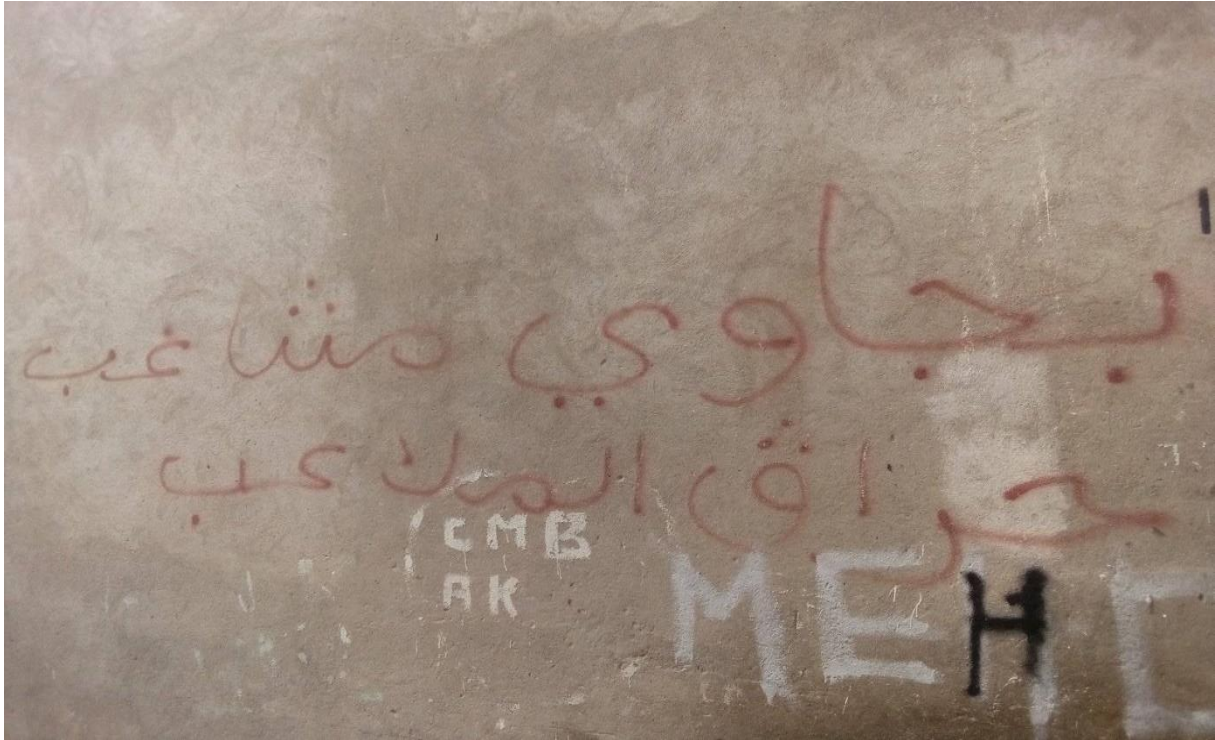 بجاوي مشاغب
حراق الملاعب
CMB
AK